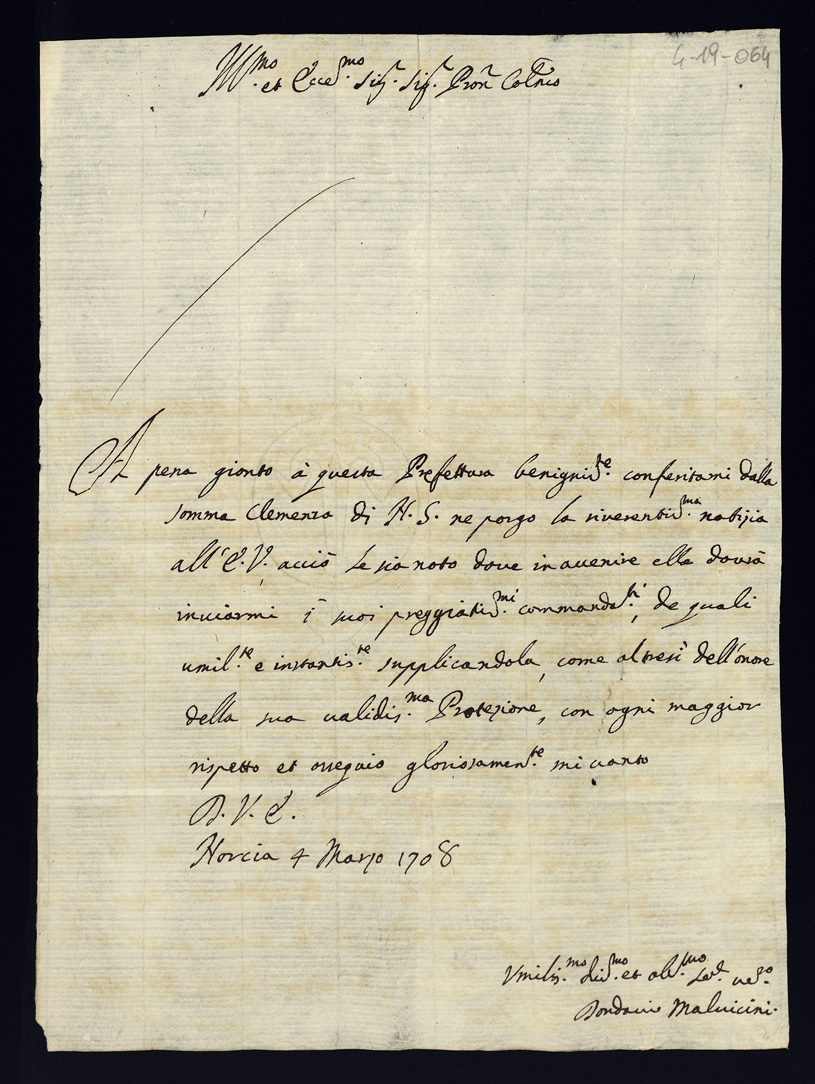 4-19-064
Ill.mo et Ecce.mo Sig.r Sig.r Pron Col.mo
A pena gionto à questa Prefettura benignis.te conferitami dalla
somma Clemenza di N. S. ne porgo la riverentis.ma notizia
all'E. V. acciò le sia noto dove in avenire ella dovrà
inviarmi i suoi preggiatis.mi commanda.ti, de quali
umil.te e instantis.te supplicandola, come altresi dell'onore
della sua validis.ma Protezione, con ogni maggior
rispetto et ossequio gloriosamen.te mi vanto
D. V. E.
Norcia 4 Marzo 1708
Vmilis.mo div.mo et obl.mo ser.
Malvicini.